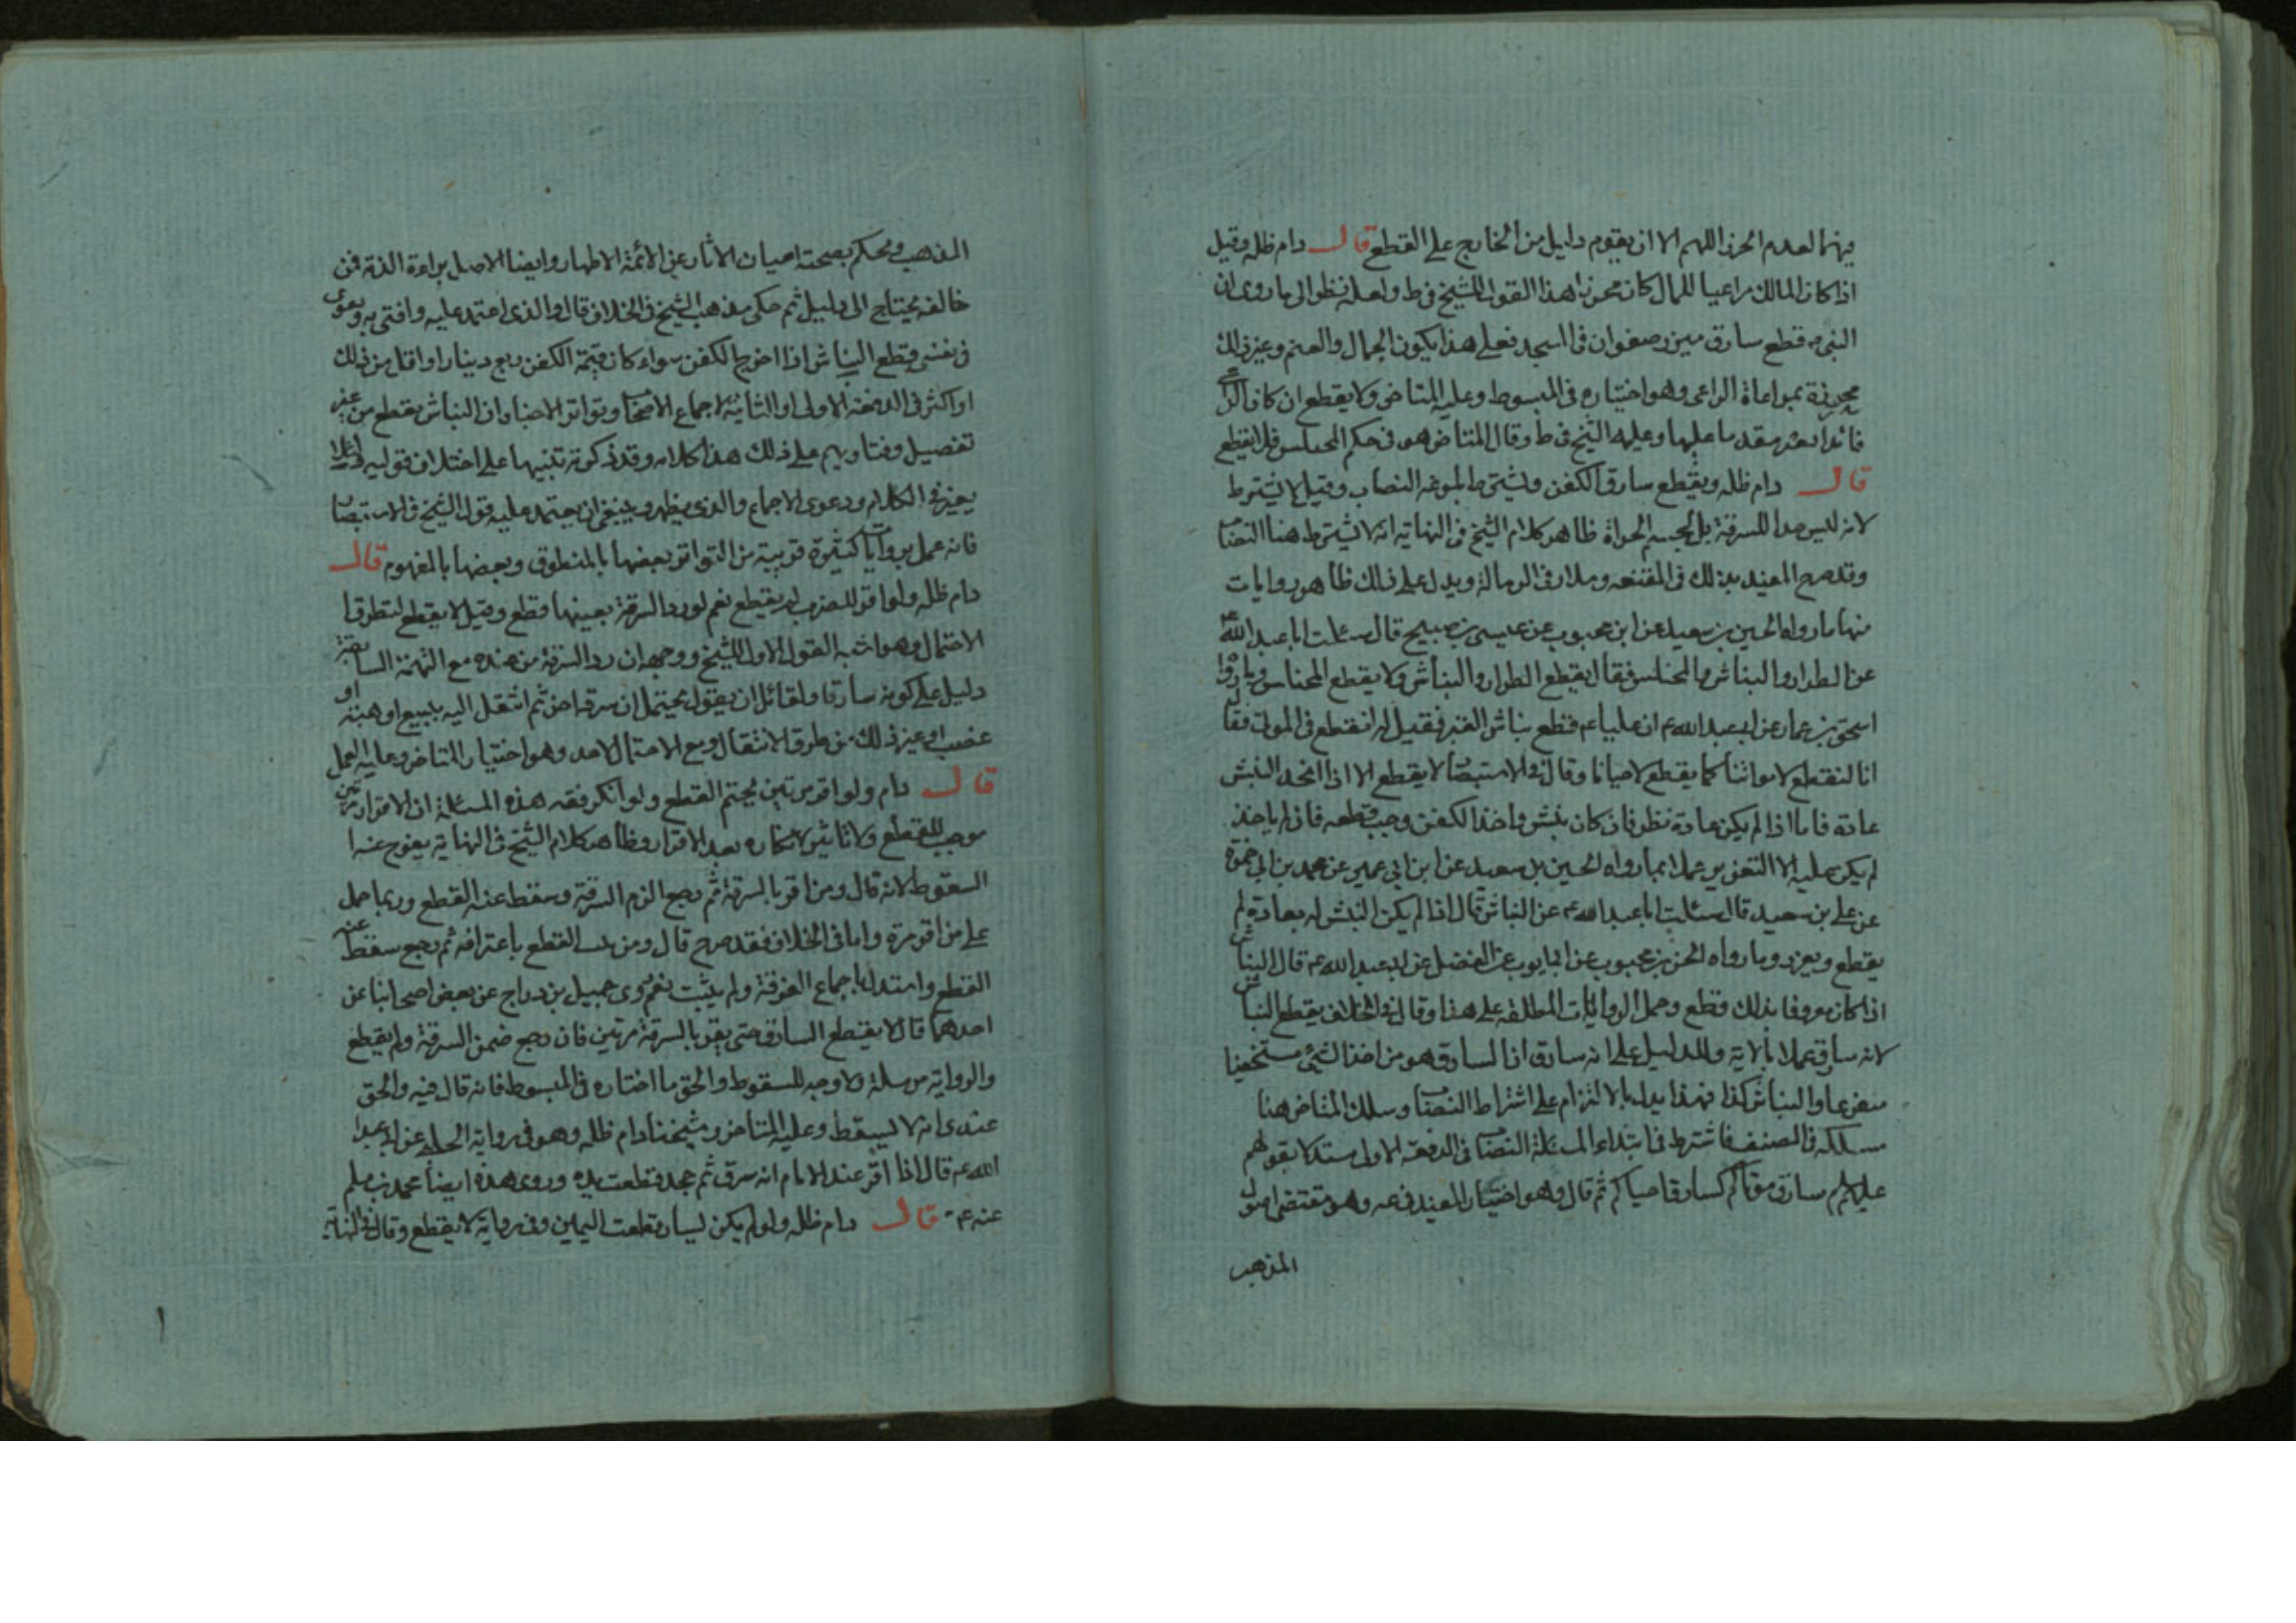 فيهما لعدم الحرز اللهم الا ان يقوم دليل من الخارج على القطع قال دام ظله وقيل
اذا كان المالك مراعيا للمال كان محرزا هذا القول للشيخ فى ط ولعله نظرا الى ما روى ان
النبى قطع سارق ميزر صفوان فى المسجد فعلى هذا يكون الجمال والغنم وغير ذلك
محرزة بمراعاة الراعى وهو اختياره فى المبسوط وعليه المتاخر ولا يقطع ان كان
وعليه الشيخ فى ط وقال المتاخر هو فى حكم المختلس فلا يقطع
قال دام ظله ويقطع سارق الكفن ويشترط بلوغه النصاب وقيل لا يشترط
لانه ليس حدا للسرقة بل لحسم الجراة ظاهر كلام الشيخ فى النهاية انه لا يشترط هنا النصاب
وقد صرح المفيد بذلك فى المقنعة وسلار فى الرسالة ويدل على ذلك ظاهر روايات
منها ما رواه الحسين بن سعيد عن ابن محبوب عن عيسى بن صبيح قال سئلت ابا عبد الله
عن الطرار والنباش والمختلس فقال يقطع الطرار والنباش ولا يقطع المختلس وما رواه
اسحق بن عمار عن ابى عبد الله ع ان عليا ع قطع نباش القبر فقيل له اتقطع فى الموتى فقال
انا لنقطع لامواتنا كما يقطع لاحيانا وقال فى الاستبصار لا يقطع الا اذا اتخذ النبش
عادة فاما اذا لم يكن عادة نظر فان كان نبش واخذ الكفن وجب قطعه فان لم ياخذ
لم يكن عليه الا التعزير عملا بما رواه الحسين بن سعيد عن ابن ابى عمير عن محمد بن ابى حمزة
عن على بن سعيد قال سئلت ابا عبد الله ع عن النباش قال اذا لم يكن النبش له بعادة لم
يقطع ويعزر وما رواه الحسن بن محبوب عن ابى ايوب عن الفضل عن ابى عبد الله ع قال النباش
اذا كان معروفا بذلك قطع وحمل الروايات المطلقة على هذا وقال فى الخلاف يقطع النباش
لانه سارق عملا بالاية والدليل على انه سارق ان السارق هو من اخذ الشىء مستخفيا
متفزعا والنباش كذا فهذا يدل بالالتزام على اشتراط النصاب وسلك المتاخر هنا
مسلكه فى الصنف فاشترط فى ابتداء المسئلة النصاب فى الدفعة الاولى مستدلا بقولهم
عليهم لم سارق موتاكم كسارق احياكم ثم قال وهو اختيار المفيد فى عه وهو مقتضى اصول
المذهب
المذهب ويحكم بصحته اعيان الاثار عن الائمة الاطهار وايضا الاصل براءة الذمة فمن
خالفه يحتاج الى دليل ثم حكى مذهب الشيخ فى الخلاف قال والذى اعتمد عليه وافتى به ويقوى
فى نفسى قطع النباش اذا اخرج الكفن سواء كان قيمة الكفن ربع دينار او اقل من ذلك
او اكثر فى الدفعة الاولى او الثانية لاجماع الاصحاب وتواتر الاخبار ان النباش يقطع من غير
تفصيل وفتاويهم على ذلك هذا كلامه وقد ذكرته تنبيها على اختلاف قوليه لئلا
يغتر فى الكلام ودعوى الاجماع والذى يظهر وينبغى ان يعتمد عليه قول الشيخ فى الاستبصار
فانه عمل بروايات كثيرة قريبة من التواتر بعضها بالمنطوق وبعضها بالمفهوم قال
دام ظله ولو اقر للضرب لم يقطع نعم لو رد السرقة بعينها قطع وقيل لا يقطع لتطرق
الاحتمال وهو اشبه القول الاول للشيخ ووجهه ان رد السرقة من عنده مع التهمة السابقة
دليل على كونه سارقا ولقائل ان يقول يحتمل ان سرقه اخر ثم انتقل اليه ببيع او هبة او
غصب او غير ذلك من طرق الانتقال ومع الاحتمال لا حد وهو اختيار المتاخر وعليه العمل
قال دام ولو اقر مرتين تحتم القطع ولو انكر فقه هذه المسئلة ان الاقرار مرتين
موجب للقطع ولا تاثير لانكاره بعد الاقرار وظاهر كلام الشيخ فى النهاية يفوح عنه
السقوط لانه قال ومن اقر بالسرقة ثم رجع الزم السرقة وسقط عنه القطع وربما حمل
على من اقر مرة واما فى الخلاف فقد صرح قال ومن القطع باعترافه ثم رجع سقط عنه
القطع واستدل باجماع الفرقة ولم يثبت نعم روى جميل بن دراج عن بعض اصحابنا عن
احدهما قال لا يقطع السارق حتى يقر بالسرقة مرتين فان رجع ضمن السرقة ولم يقطع
والرواية مرسلة ولا وجه للسقوط والحق ما اختاره فى المبسوط فانه قال فيه والحق
عندى انه لا يسقط وعليه المتاخر وشيخنا دام ظله وهو فى رواية الحلبى عن ابى عبد
الله ع قال اذا اقر عند الامام انه سرق ثم جحد قطعت يده وروى هذه ايضا محمد بن مسلم
عنه ع قال دام ظله ولو لم يكن يسار قطعت اليمين وفى رواية لا يقطع وقال فى النهاية